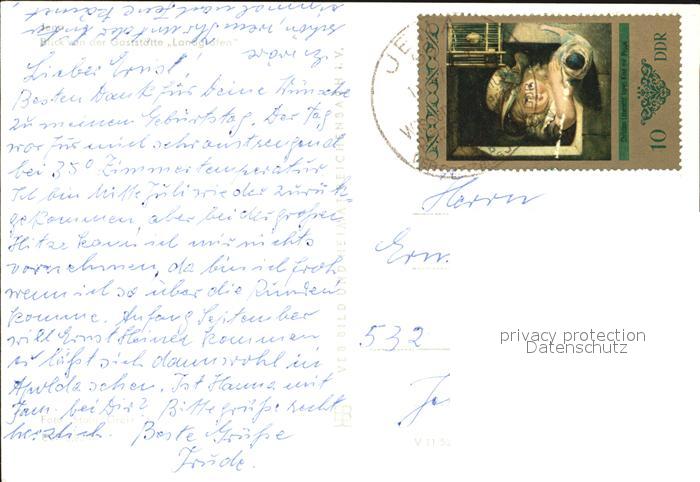 Jena
Blick von der Gaststätte „Landgrafen"
Lieber Ernst!
Besten Dank für Deine Wünsche
zu meinem Geburtstag. Der Tag
war für mich sehr anstrengend
bei 35° Zimmertemperatur
Ich bin Mitte Juli wieder zurück
gekommen, aber bei der großen
Hitze kann ich mir nichts
vornehmen, da bin ich froh
wenn ich so über die Runden
komme. Anfang September
will Ernst Heiner kommen
es läßt sich dann wohl in
Apolda sehen. Ist Hanna mit
Fam. bei Dir? Bitte grüße recht
herzlich. Beste Grüße
Trude.
VEB BILD UND HEIMAT REICHENBACH i. V.
V 11 50
JE
10 DDR
Herrn
Erw.
532
Je
privacy protection
Datenschutz